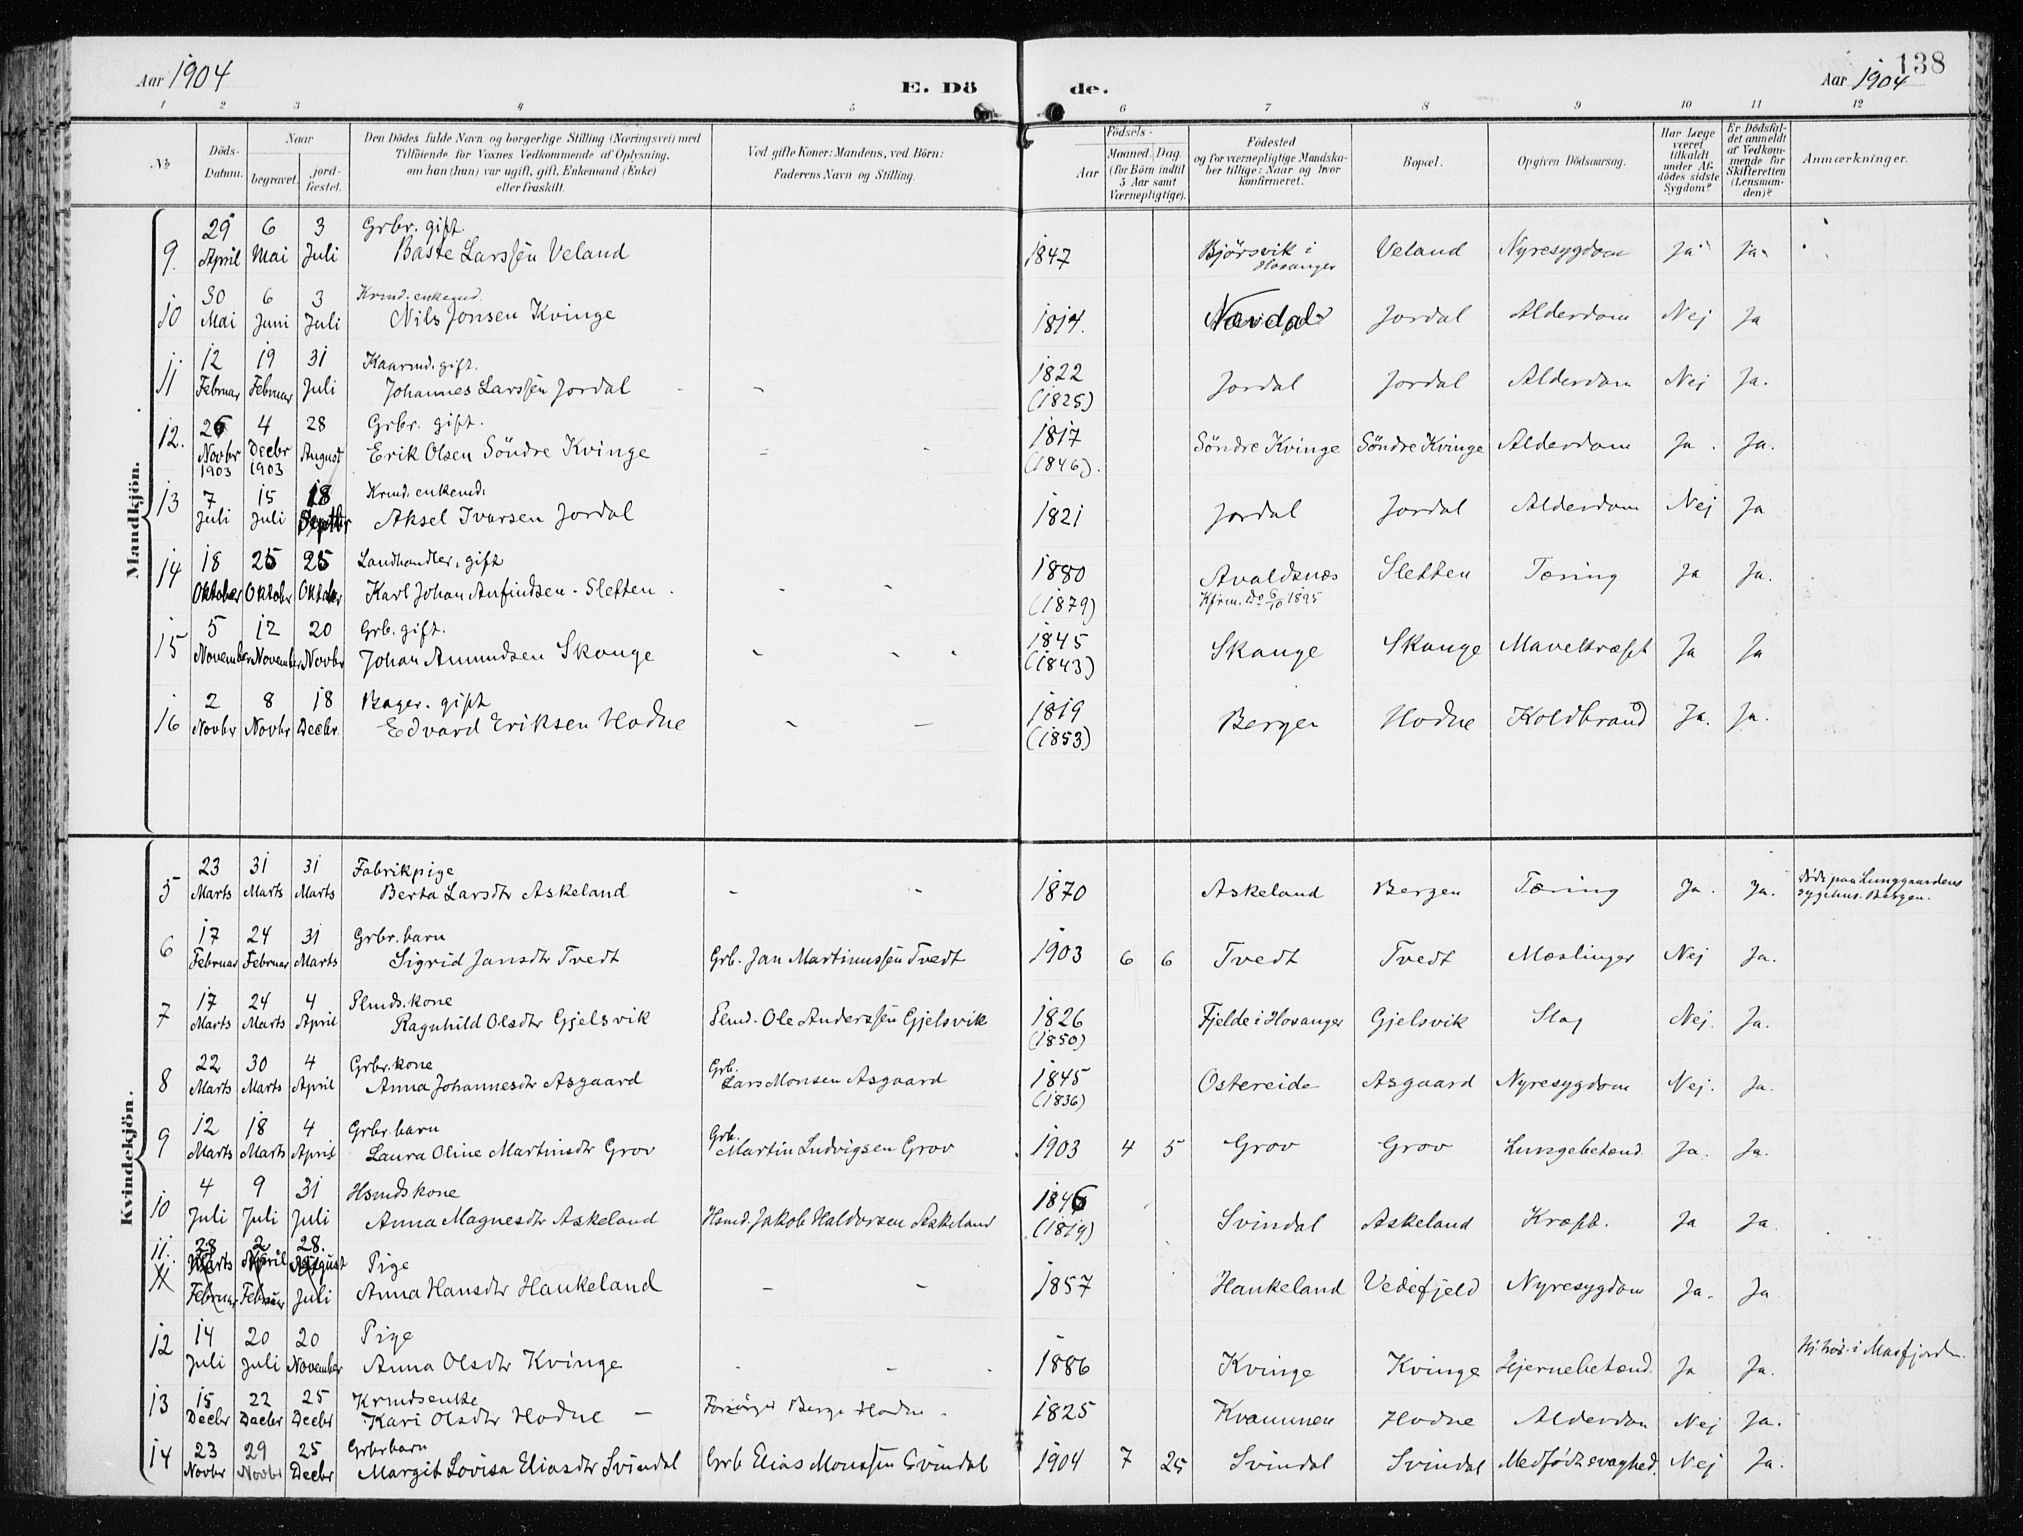 Aar 1904
E. Döde.
138
Aar 1904
1 2 3 4 5 6 7 8 9 10 11 12
No
Döds-Datum.
Naar
begravet.
jord-fæstet.
Den Dödes fulde Navn og borgerlige Stilling (Næringsvei) med
Tilföiende for Voxnes Vedkommende af Oplysning,
om han (hun) var ugift, gift, Enkemand (Enke)
eller fraskilt.
Ved gifte Koner: Mandens, ved Börn:
Faderens Navn og Stilling.
Födsels-
Aar
Maaned. Dag.
(for Börn indtil
5 Aar samt
Værnepligtige).
Födested
og for værnepligtige Mandska-
ber tillige: Naar og hvor
konfirmeret.
Bopæl.
Opgiven Dödsaarsag.
Har Læge
været
tilkaldt
under Af-
dödes sidste
Sygdom?
Er Dödsfal-
det anmeldt
af Vedkom-
mende for
Skifteretten
(Lensman-
den)?
Anmærkninger.
Mandkjön.
29 6 3 Grbr. gift.
9. April Mai Juli Baste Larssen Veland 1847 Bjørsvik i Hosanger Veland Nyresygdom Ja Ja
30 6 3 Krmd. enkemd.
10 Mai Juni Juli Nils Jonsen Kvinge 1814. Nævdal Jordal Alderdom Nej Ja
12 19 31 Kaarmd. gift.
11 Februar Februar Juli Johannes Larssen Jordal 1822 (1825) Jordal Jordal Alderdom Nej Ja.
26 4 28 Grbr. gift.
12. Novbr 1903 Decbr 1903 August Erik Olsen Söndre Kvinge 1817 (1846). Söndre Kvinge Söndre Kvinge Alderdom Ja. Ja.
7 15 18 Krmd. enkemd.
13 Juli Juli Septbr Aksel Ivarsen Jordal 1821 Jordal Jordal Alderdom Nej Ja
18 25 25 Landhandler, gift
14 Oktober Oktobr Oktober Karl Johan Anfindsen Sletten. 1880 (1879) Avaldsnæs Kfrm. Do 6/10 1895 Sletten Tæring Ja Ja.
5 12 20 Grb. gift.
15 November November Novbr Johan Amundsen Skauge 1845 (1843) Skauge Skauge Mavekræft Ja Ja
2 8 18 Bager. gift
16 Novbr Novbr Decbr. Edvard Eriksen Hodne 1819 (1853) Bergen Hodne Koldbrand Ja. Ja.
Kvindekjön.
23 31 31 Fabrikpige
5 Marts Marts Marts Berta Larsdtr Askeland 1870 Askeland Bergen Tæring Ja. Ja. Døde paa Lunggaardens sygehus. Bergen.
17 24 31 Grbr. barn
6 Februar Februar Marts Sigrid Jansdtr Tvedt Grb. Jan Martinussen Tvedt 1903 6 6 Tvedt Tvedt Mæslinger Nej Ja.
17 24 4 Plmds. kone
7 Marts Marts April Ragnhild Olsdtr Gjelsvik Plmd. Ole Anderssen Gjelsvik 1826 (1850) Fjelde i Hosanger Gjelsvik Slag Nej. Ja.
22 30 4 Grbr. kone
8 Marts Marts April Anna Johannesdtr Asgaard Grb. Lars Monsen Asgaard 1845 (1836) Ostereide Asgaard Nyresygdom Nej. Ja.
12 18 4 Grbr. barn
9 Marts Marts April Laura Oline Martinsdtr Grov Grb. Martin Ludvigsen Grov 1903 4 5 Grov Grov Lungebetænd. Ja. Ja.
4 9 31 Hsmdskone
10 Juli Juli Juli Anna Magnesdtr Askeland Hsmd. Jakob Haldorsen Askeland 1846 (1819) Svindal Askeland Kræft. Ja Ja.
11. 28 2 28
Marts April August Pige
11 Februar Februar Juli Anna Hansdtr Haukeland 1857 Haukeland Vedefjeld Nyresygdom Ja. Ja
14 20 20 Pige
12 Juli Juli November Anna Olsdtr Kvinge 1886 Kvinge Kvinge Hjernebetænd. Ja Ja. i Masfjorden.
15 22 25 Krmdsenke
13 Decbr Decbr Decbr Kari Olsdtr Hodne Forsörger Berge Hodne 1825 Kvammen Hodne Alderdom Nej Ja.
23 29 25 Grbr barn
14 Novbr Novbr Decbr Margit Lovisa Eliasdtr Svindal Grb Elias Monssen Svindal 1904 7 25 Svindal Svindal Medfødt svaghed. Nej Ja.